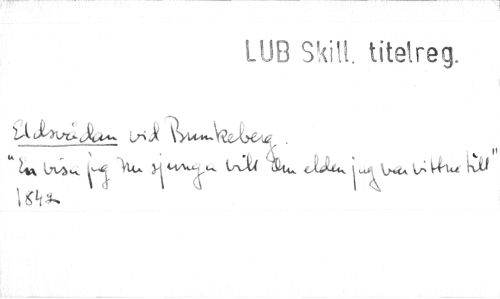 LUB Skill. titelreg.
Eldsvådan vid Bunkeberg.
"En visa jag nu sjunga vill Om elden jag var vittne till"
1842